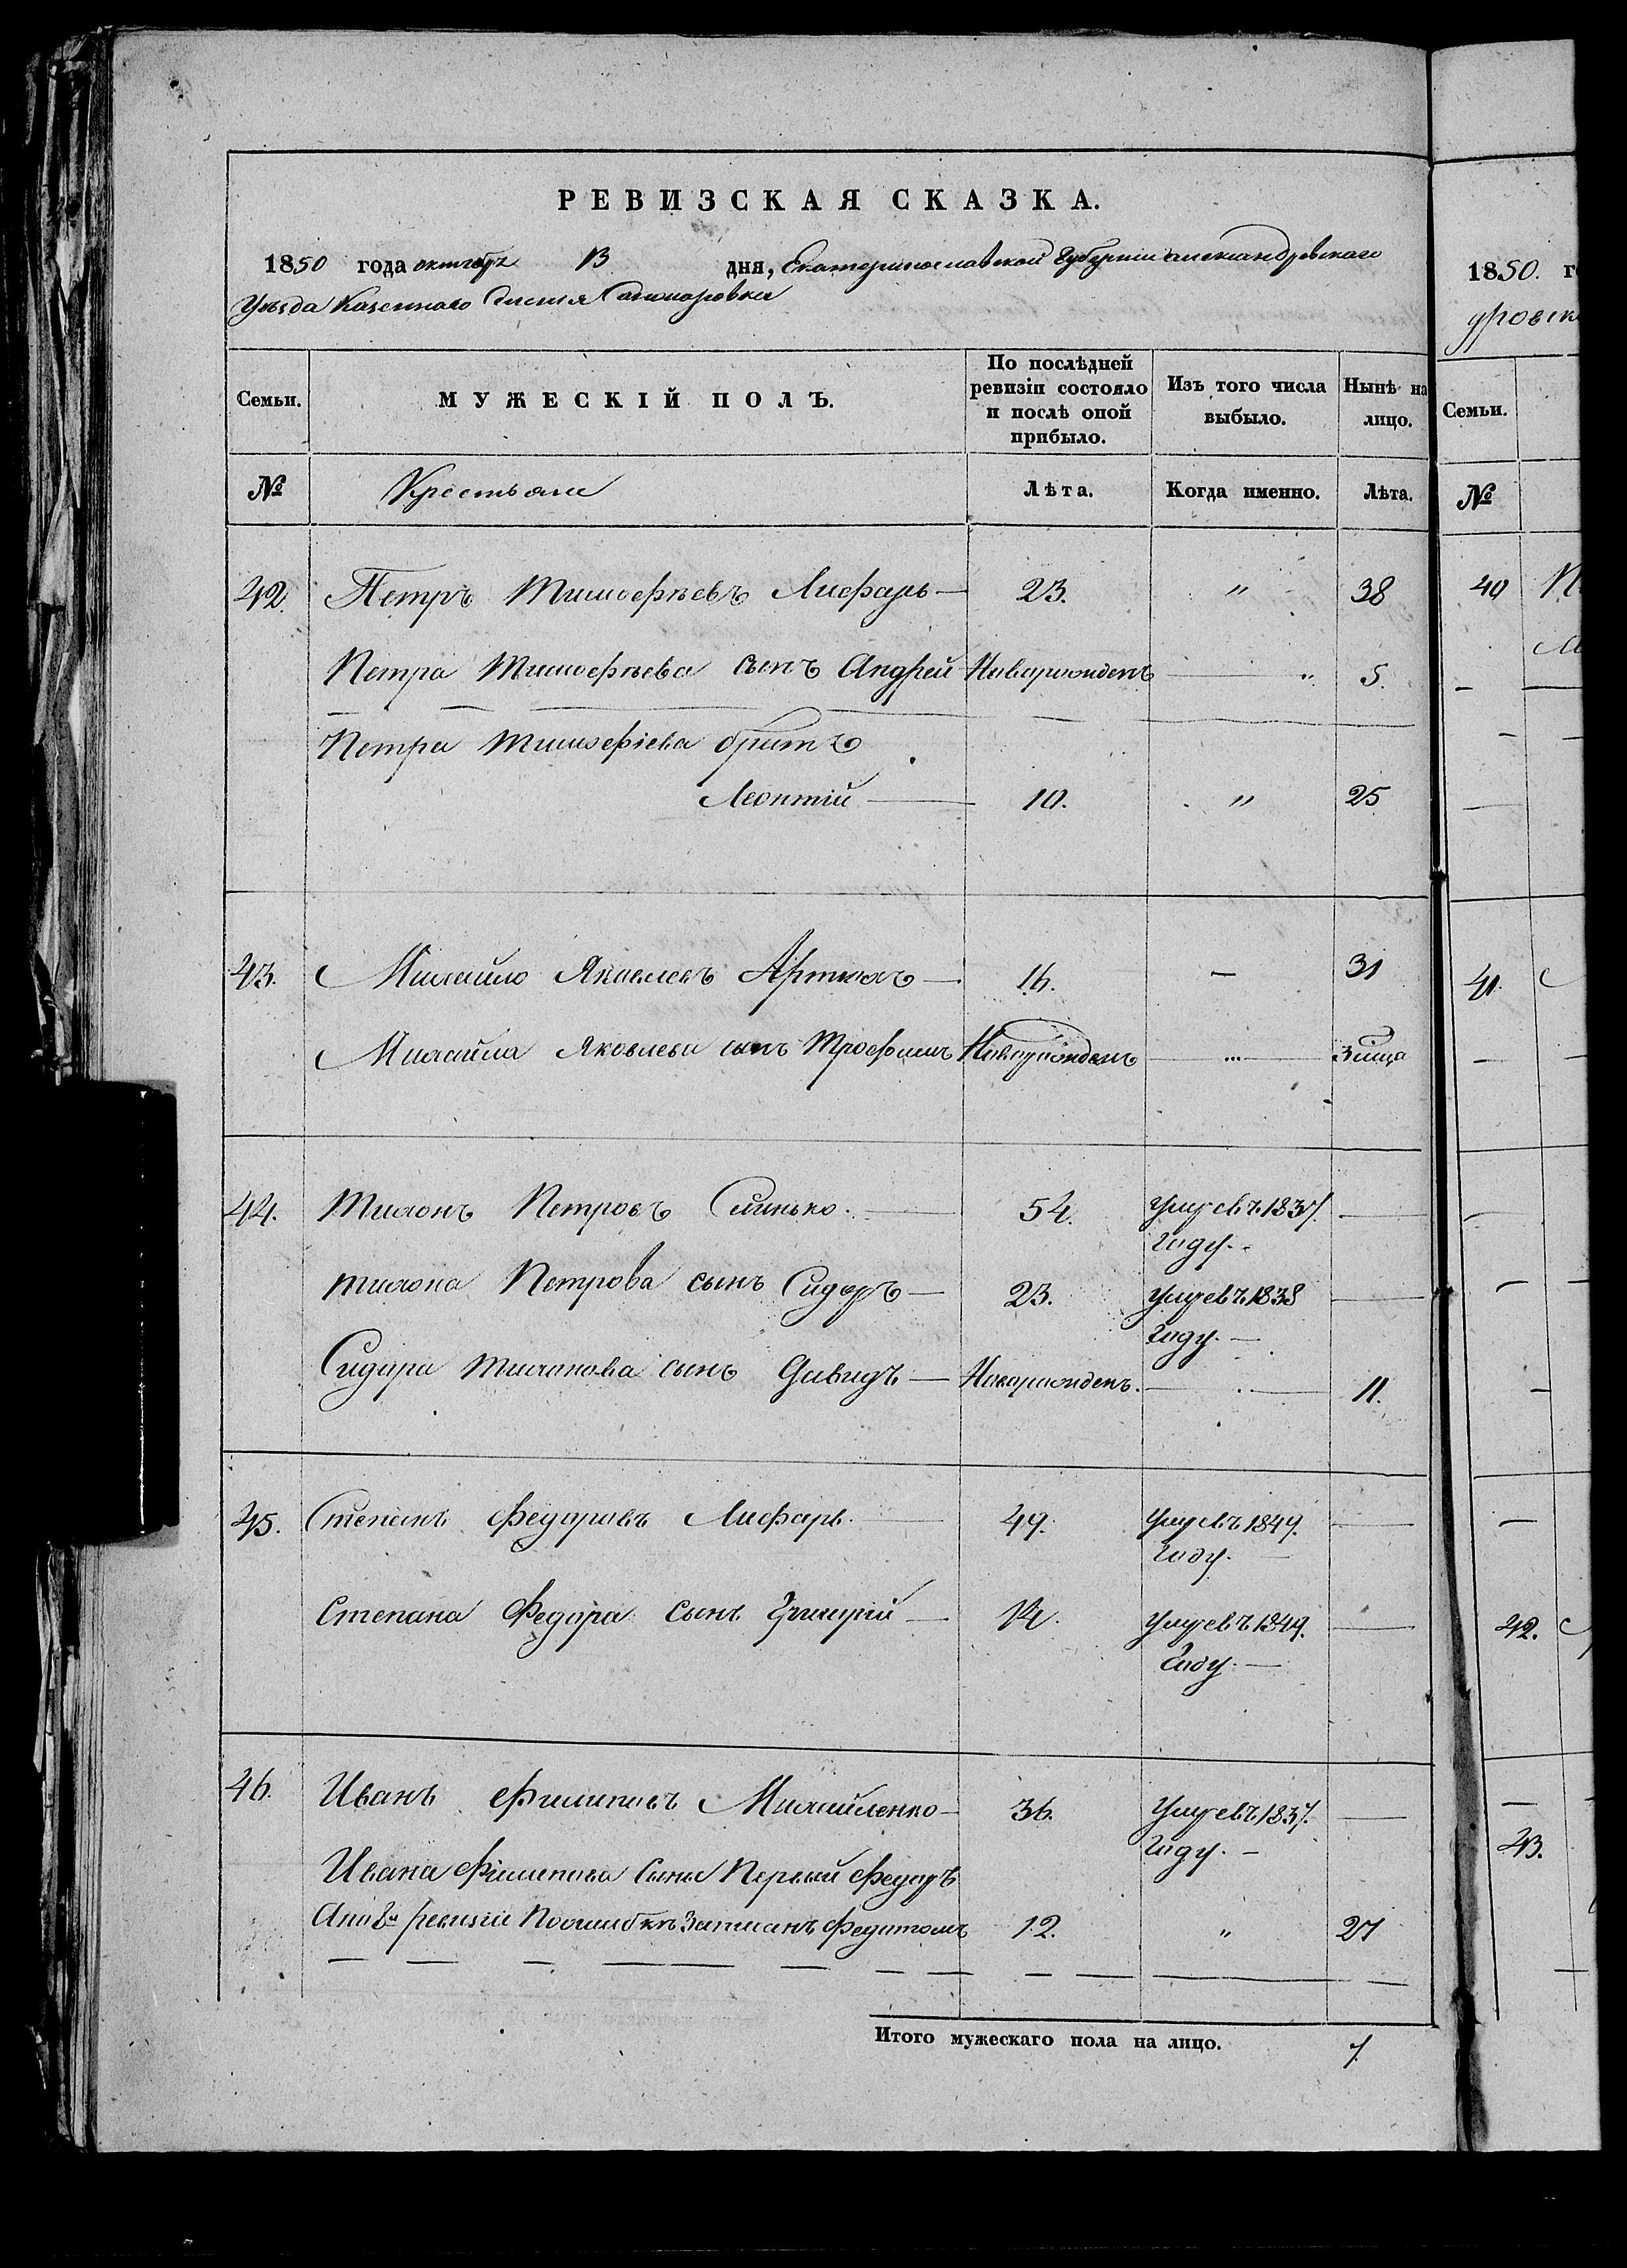 РЕВИЗСКАЯ СКАЗКА.
1850 года октября 13 дня, Екатеринославской Губерніи александровскаго
Уѣзда Казеннаго
Семьи. МУЖЕСКІЙ ПОЛЪ. По послѣдней ревизіи состояло и послѣ оной прибыло. Изъ того числа выбыло. Нынѣ на лицо.
№ Крестьяне Лѣта. Когда именно. Лѣта.
42. Петръ Тимофѣевъ Лифарь — 23. " 38
Петра Тимофѣева сынъ Андрей Новорожденъ — " 5.
Петра Тимофіева братъ
Леонтій — 10. " 25
43. Михайло Яковлевъ Артюхъ — 16. — 31
Михайла Яковлева сынъ Трофимъ Новорожденъ — 3 мѣца
44. Тихонъ Петровъ Синько. — 54. умре въ 1837. —
году. -
тихона Петрова сынъ Сидоръ — 23. умре въ 1838 —
году. —
Сидора тихонова сынъ Давидъ — Новорожденъ. — 11.
45. Степанъ Федоровъ Лифарь. — 49. умре въ 1849. —
году. —
Степана Федора сынъ Григорій — 14. умре въ 1849. —
году. —
46. Иванъ Филиповъ Михайленко — 36. Умре въ 1837. —
году. —
Ивана Филипова Сыны Первый Федоръ
Апо 8й ревизіи Поошибкѣ Записанъ Федотомъ 12. " 27
Итого мужескаго пола на лицо. 7.
1850. г
Семьи.
№
40
41.
42.
43.